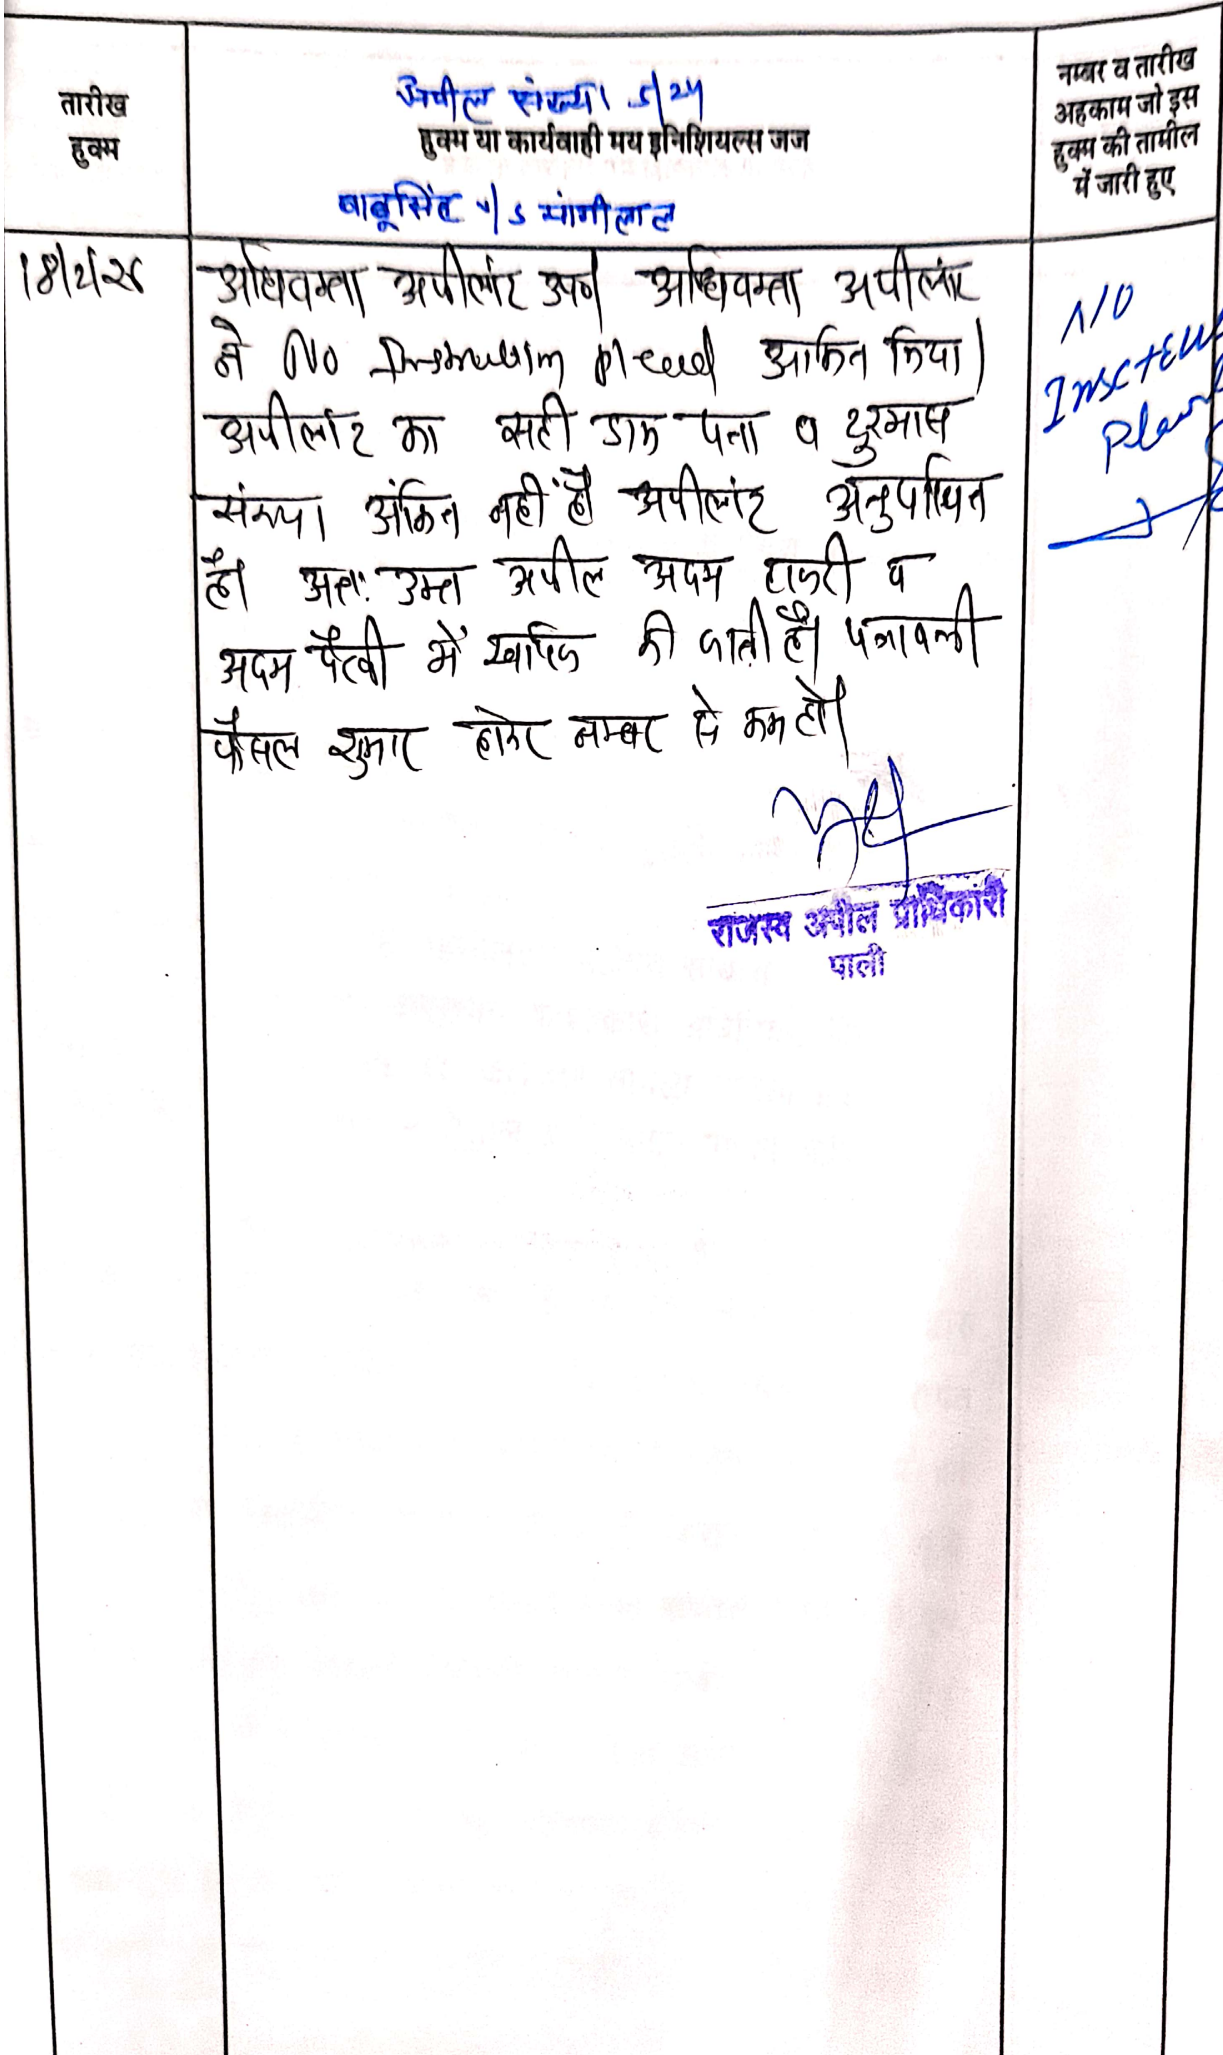 तारीख
हुक्म
अपील संख्या 5/24
हुक्म या कार्यवाही मय इनिशियल्स जज
बाबूसिंह v/s मांगीलाल
नम्बर व तारीख
अहकाम जो इस
हुक्म की तामील
में जारी हुए
18/2/26
अधिवक्ता अपीलांट उप० अधिवक्ता अपीलांट
ने No Instruction pleed अंकित किया।
अपीलांट का सही डाक पता व दुरभाष
संख्या अंकित नहीं है। अपीलांट अनुपस्थित
है। अतः उक्त अपील अदम हाजरी व
अदम पैरवी में खारिज की जाती है। पत्रावली
फैसल शुमार होकर नम्बर से कम हो।
No
Plea
राजस्व अपील प्राधिकारी
पाली